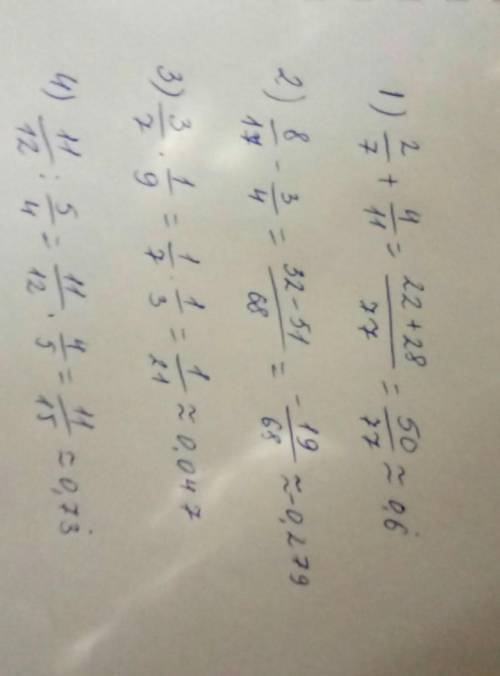 1) 2/7 + 4/11 = 22+28/77 = 50/77 ≈ 0,6
2) 8/17 - 3/4 = 32-51/68 = -19/68 ≈ -0,279
3) 3/7 · 1/9 = 1/7 · 1/3 = 1/21 ≈ 0,047
4) 11/12 : 5/4 = 11/12 · 4/5 = 11/15 ≈ 0,73